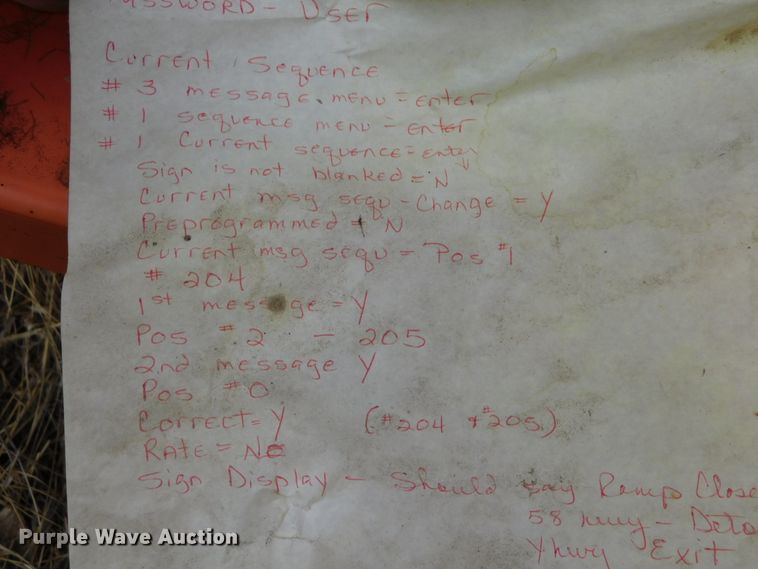 PASSWORD - User
Current Sequence
# 3 message menu = enter
# 1 sequence menu = enter
# 1 Current sequence = enter
Sign is not blanked = N
Current msg sequ - Change = Y
Preprogrammed = N
Current msg sequ = Pos #1
# 204
1st message = Y
Pos # 2 - 205
2nd message Y
Pos #0
Correct = Y (#204 + #205)
RATE = No
Sign Display - Should say Ramp Close
58 hwy - Deto
Y hwy Exit
Purple Wave Auction